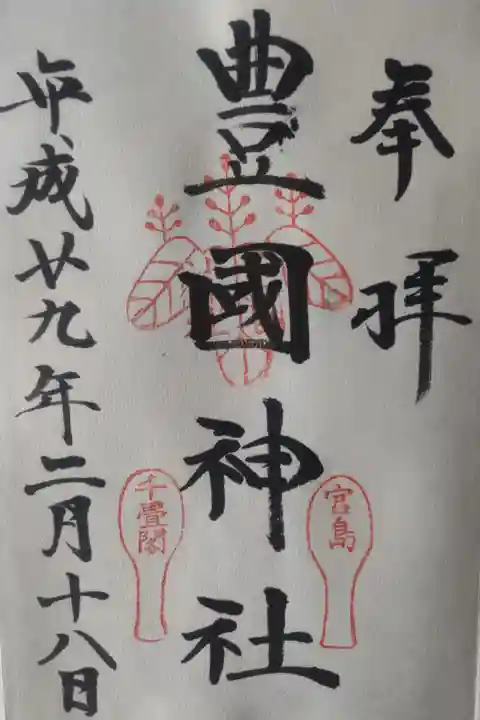 奉拝
宮島
豊國神社
千畳閣
平成廿九年二月十八日